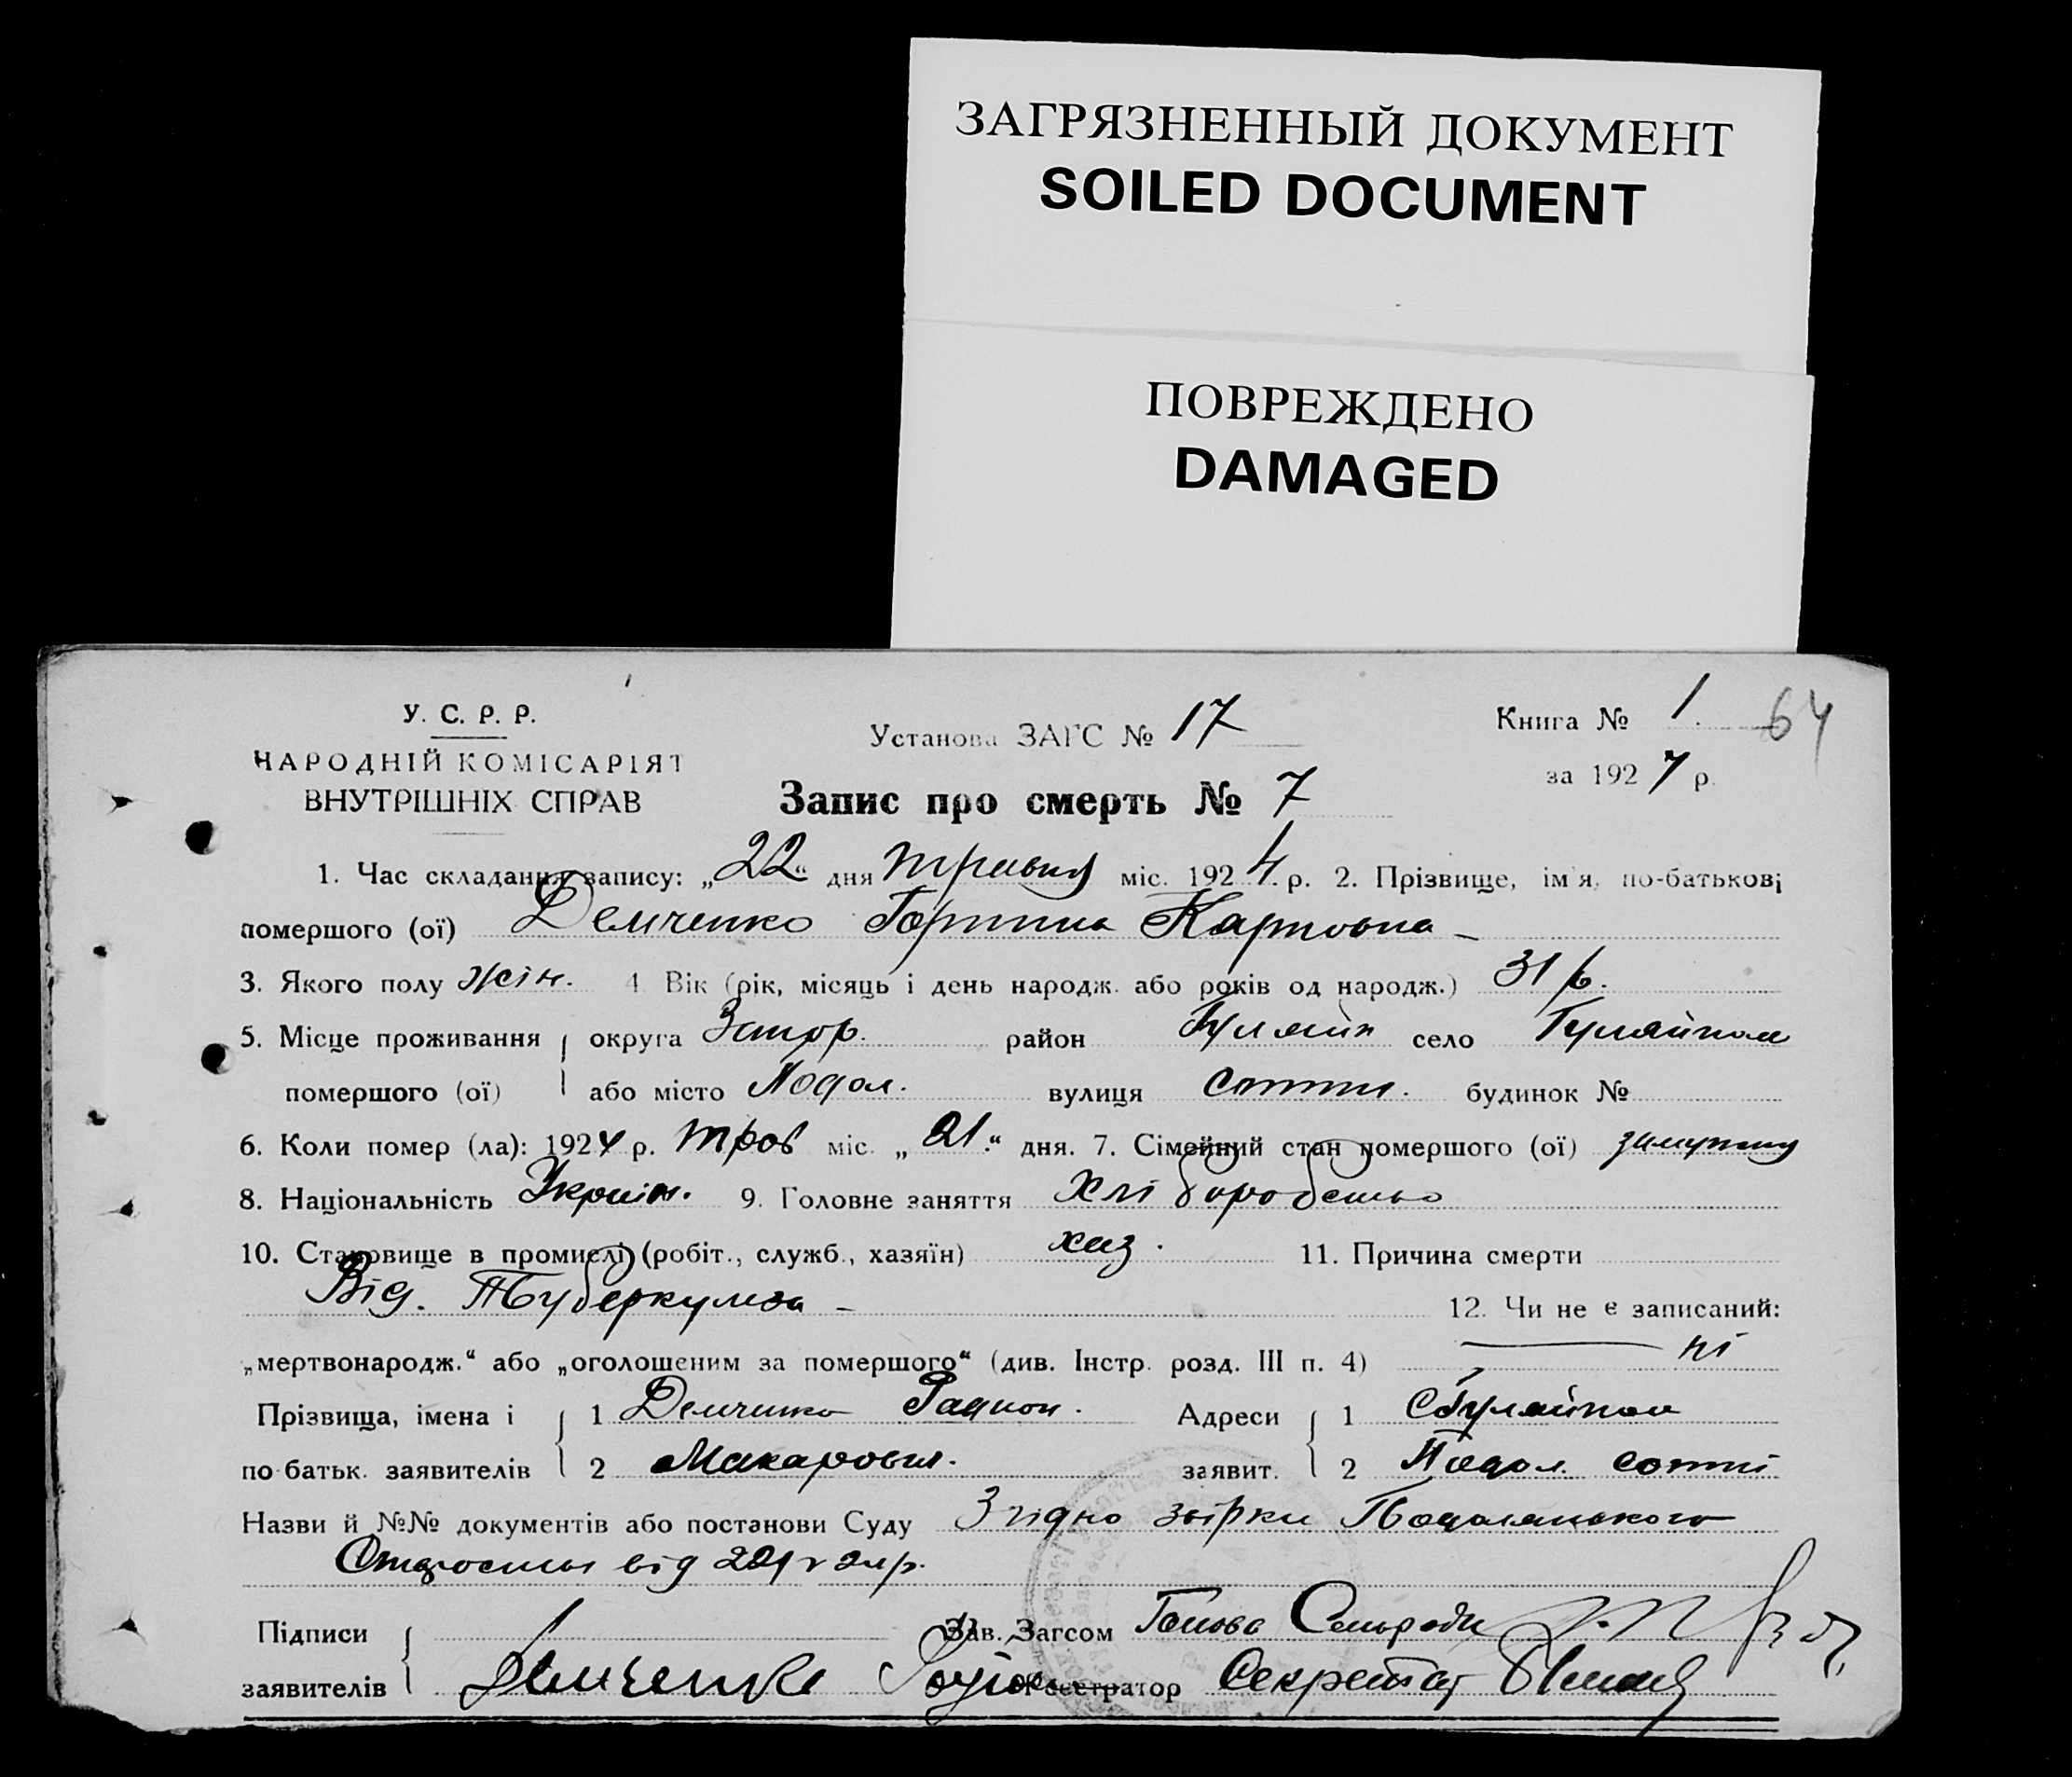 ЗАГРЯЗНЕННЫЙ ДОКУМЕНТ
SOILED DOCUMENT
ПОВРЕЖДЕНО
DAMAGED
У. С. Р. Р.
НАРОДНІЙ КОМІСАРІЯТ
ВНУТРІШНІХ СПРАВ
Установа ЗАГС № 17
Книга № 1. 64
за 1927 р.
Запис про смерть № 7
1. Час складання запису: „22“ дня травня міс. 1924. р. 2. Прізвище, ім'я, по-батькові
помершого (ої) Демченко Горпина Карповна
3. Якого полу жін. 4. Вік (рік, місяць і день народж. або років од народж.) 31 р.
5. Місце проживання округа Запор. район Гуляйп село Гуляйполе
помершого (ої) або місто Подол. вулиця сотня. будинок №
6. Коли помер (ла): 1924 р. трав міс. „21.“ дня. 7. Сімейний стан помершого (ої) замужня
8. Національність Україн. 9. Головне заняття Хліборобство
10. Становище в промислі (робіт., служб., хазяїн) хаз. 11. Причина смерти
Від. Туберкульоза 12. Чи не є записаний:
„мертвонародж.“ або „оголошеним за помершого“ (див. Інстр. розд. III п. 4) ні
Прізвища, імена і 1 Демченко Радион. Адреси 1 с Гуляйполе
по-батьк. заявителів 2 Макарович. заявит. 2 Подол. сотні
Назви й №№ документів або постанови Суду Згідно Подолянського
від
Підписи Зав. Загсом Голова Сельради
заявителів Демченко Реєстратор Секретар